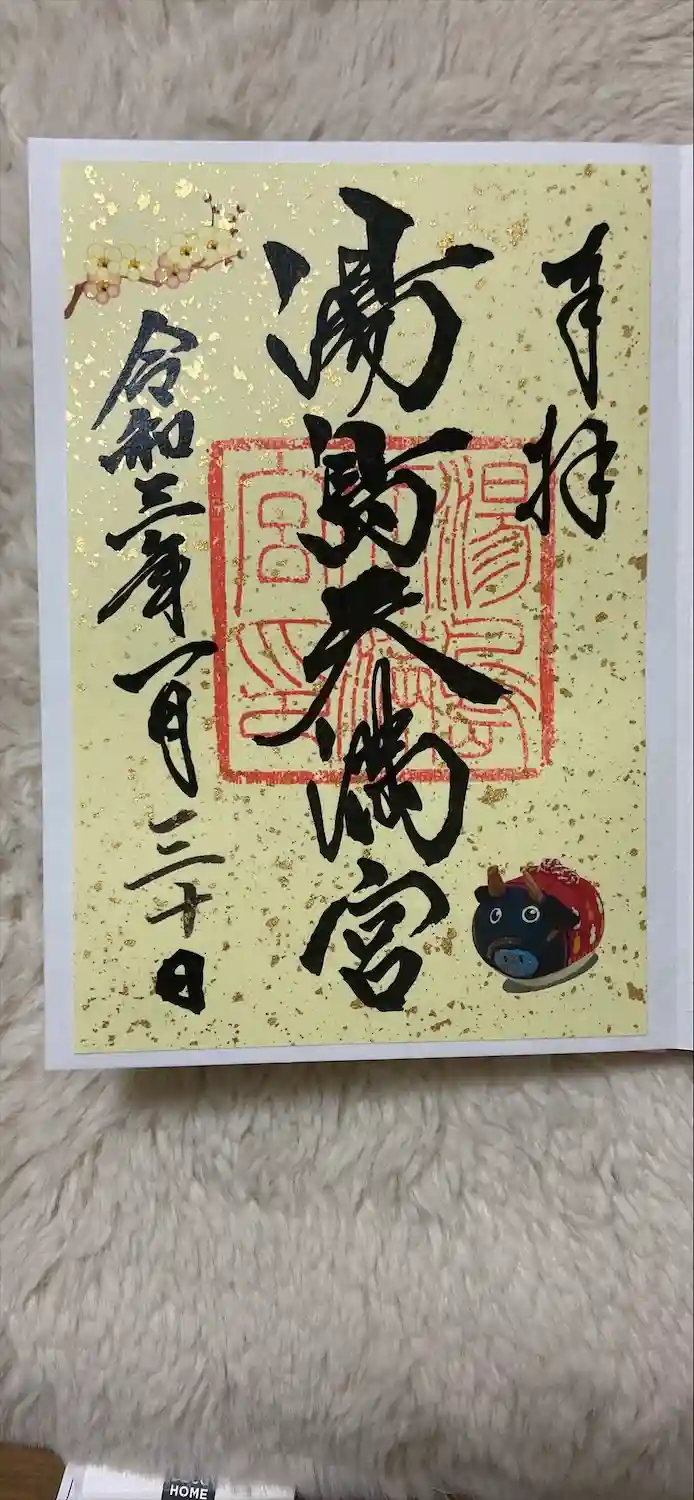 奉拝
湯島天満宮
令和三年一月三十日
湯島天満宮印
HOME